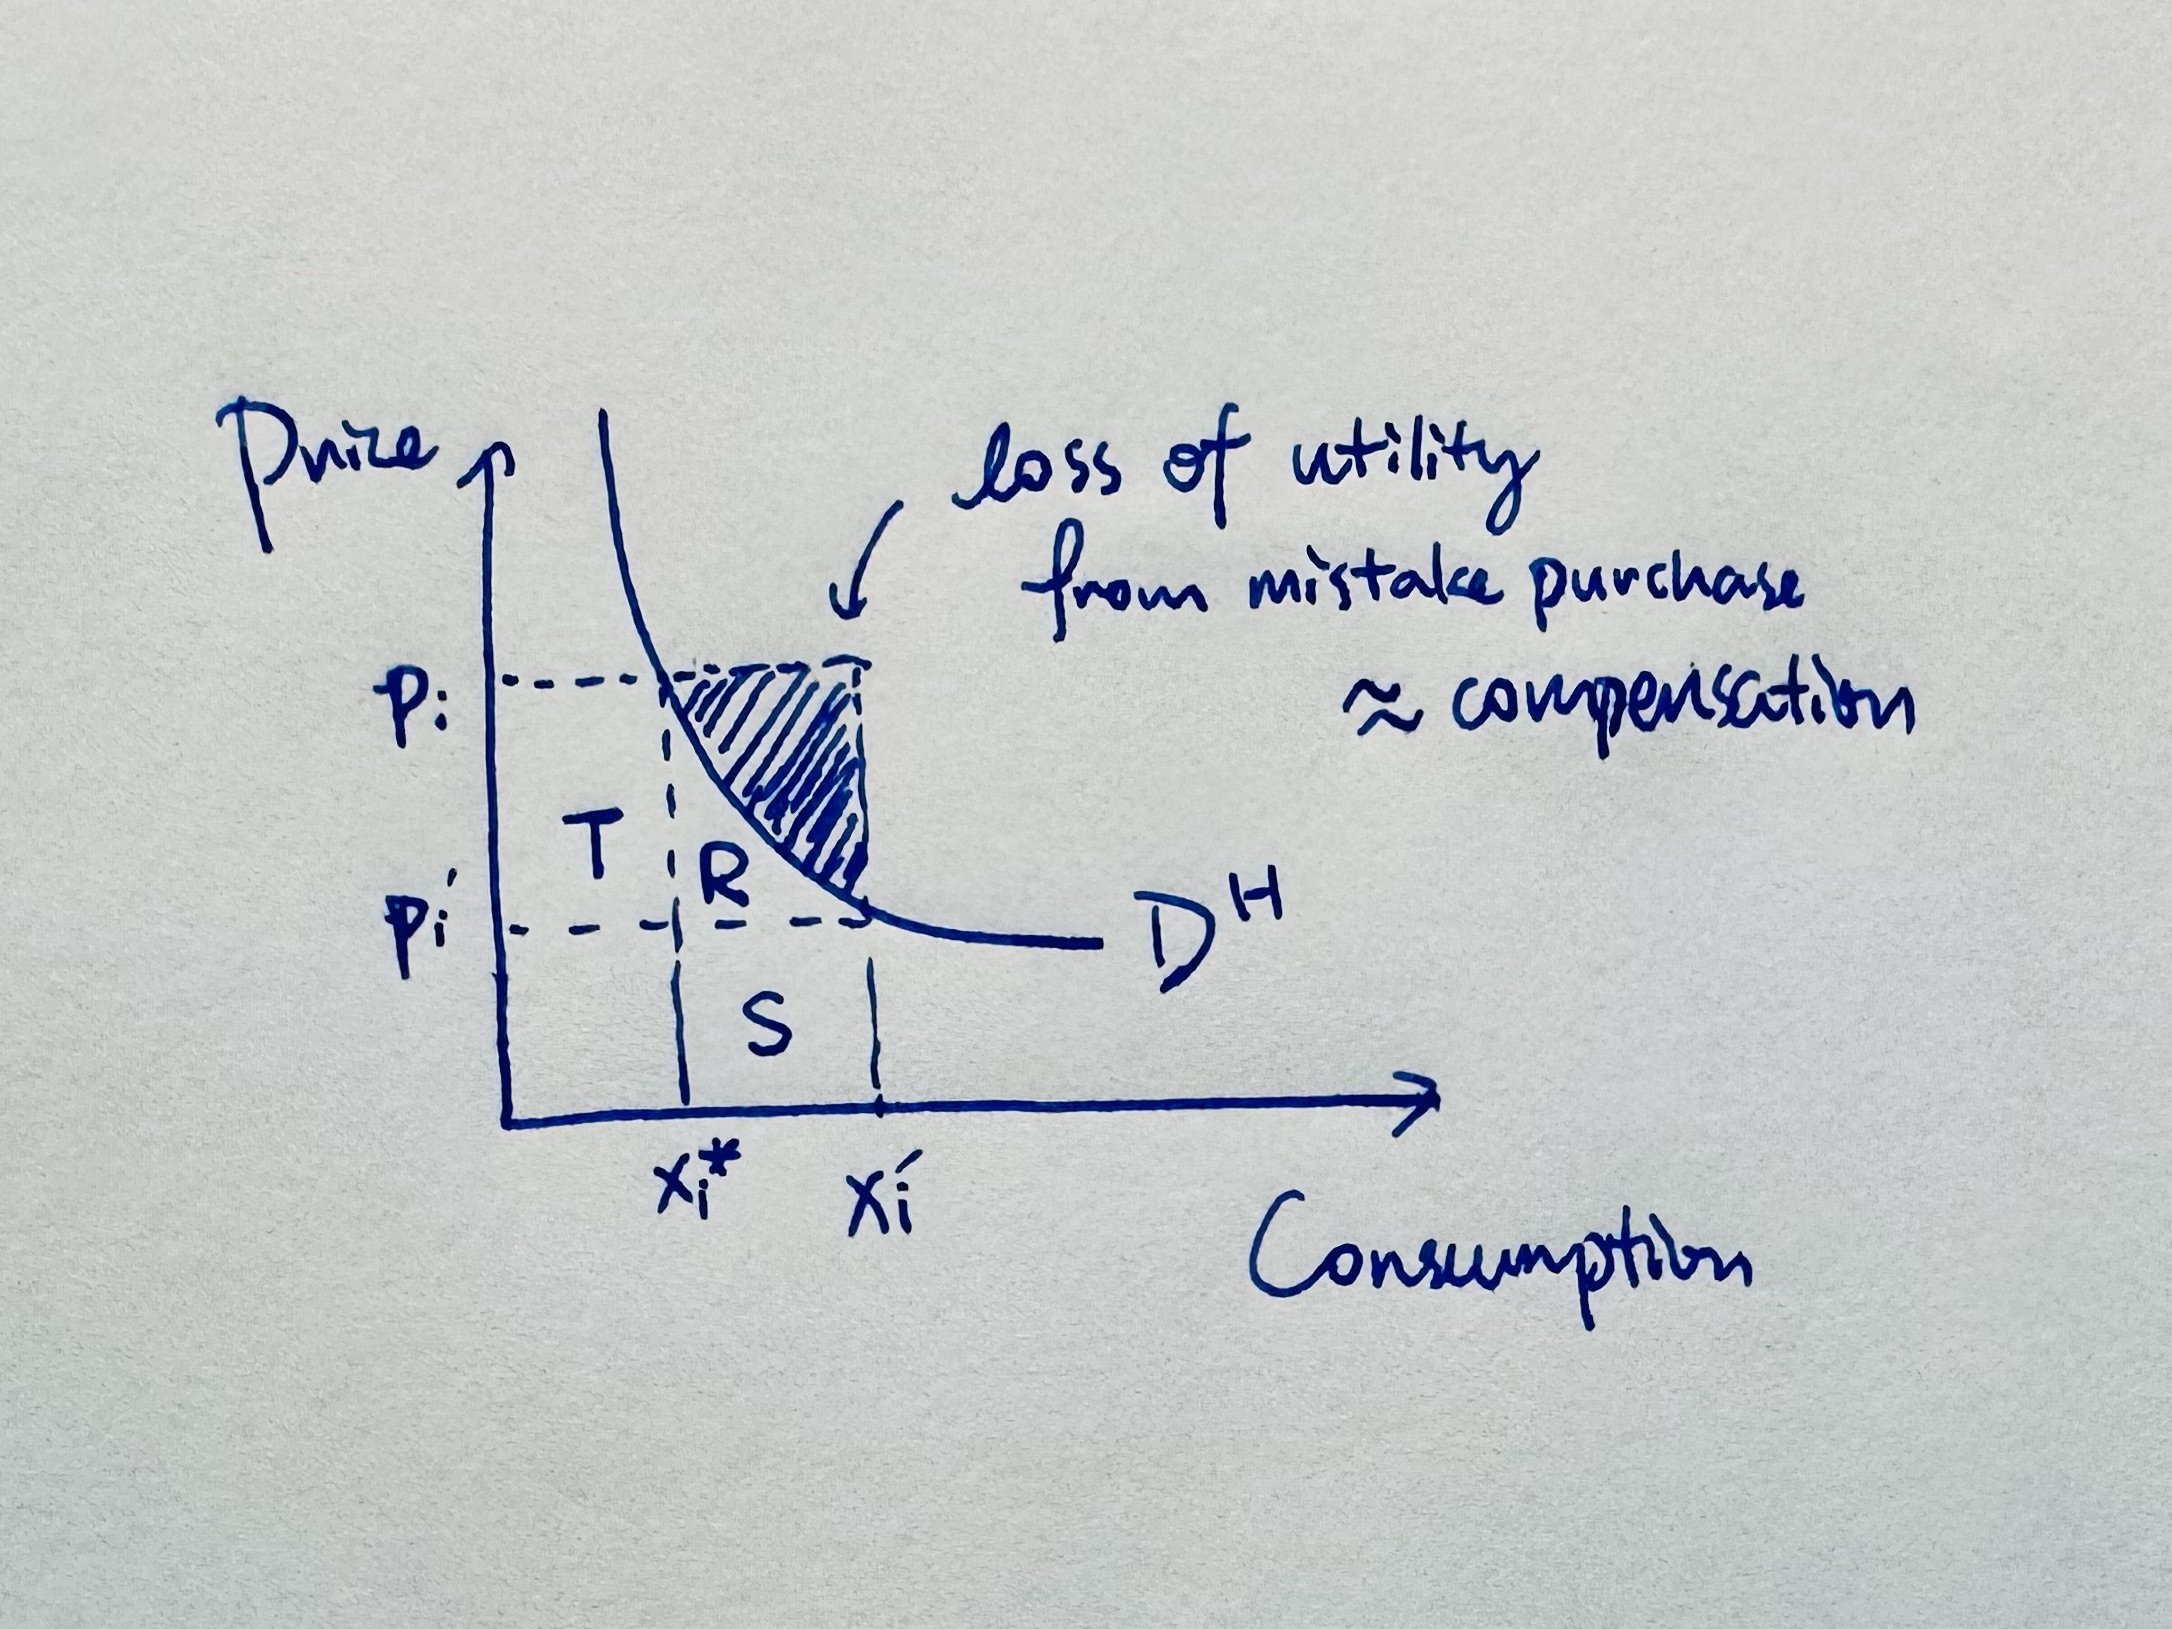 Price
loss of utility
from mistake purchase
≈ compensation
pi
T
R
pi′
Dᴴ
S
xi*
xi′
Consumption